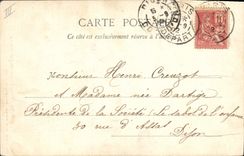 III.
CARTE POSTALE
Ce côté est exclusivement réservé à l'adresse
PARIS
DEPART
Monsieur Henri Creuzot
et Madame née Dartige
Présidente de la Société : Le tabot de l'enfance
30 rue d'Assas
Dijon